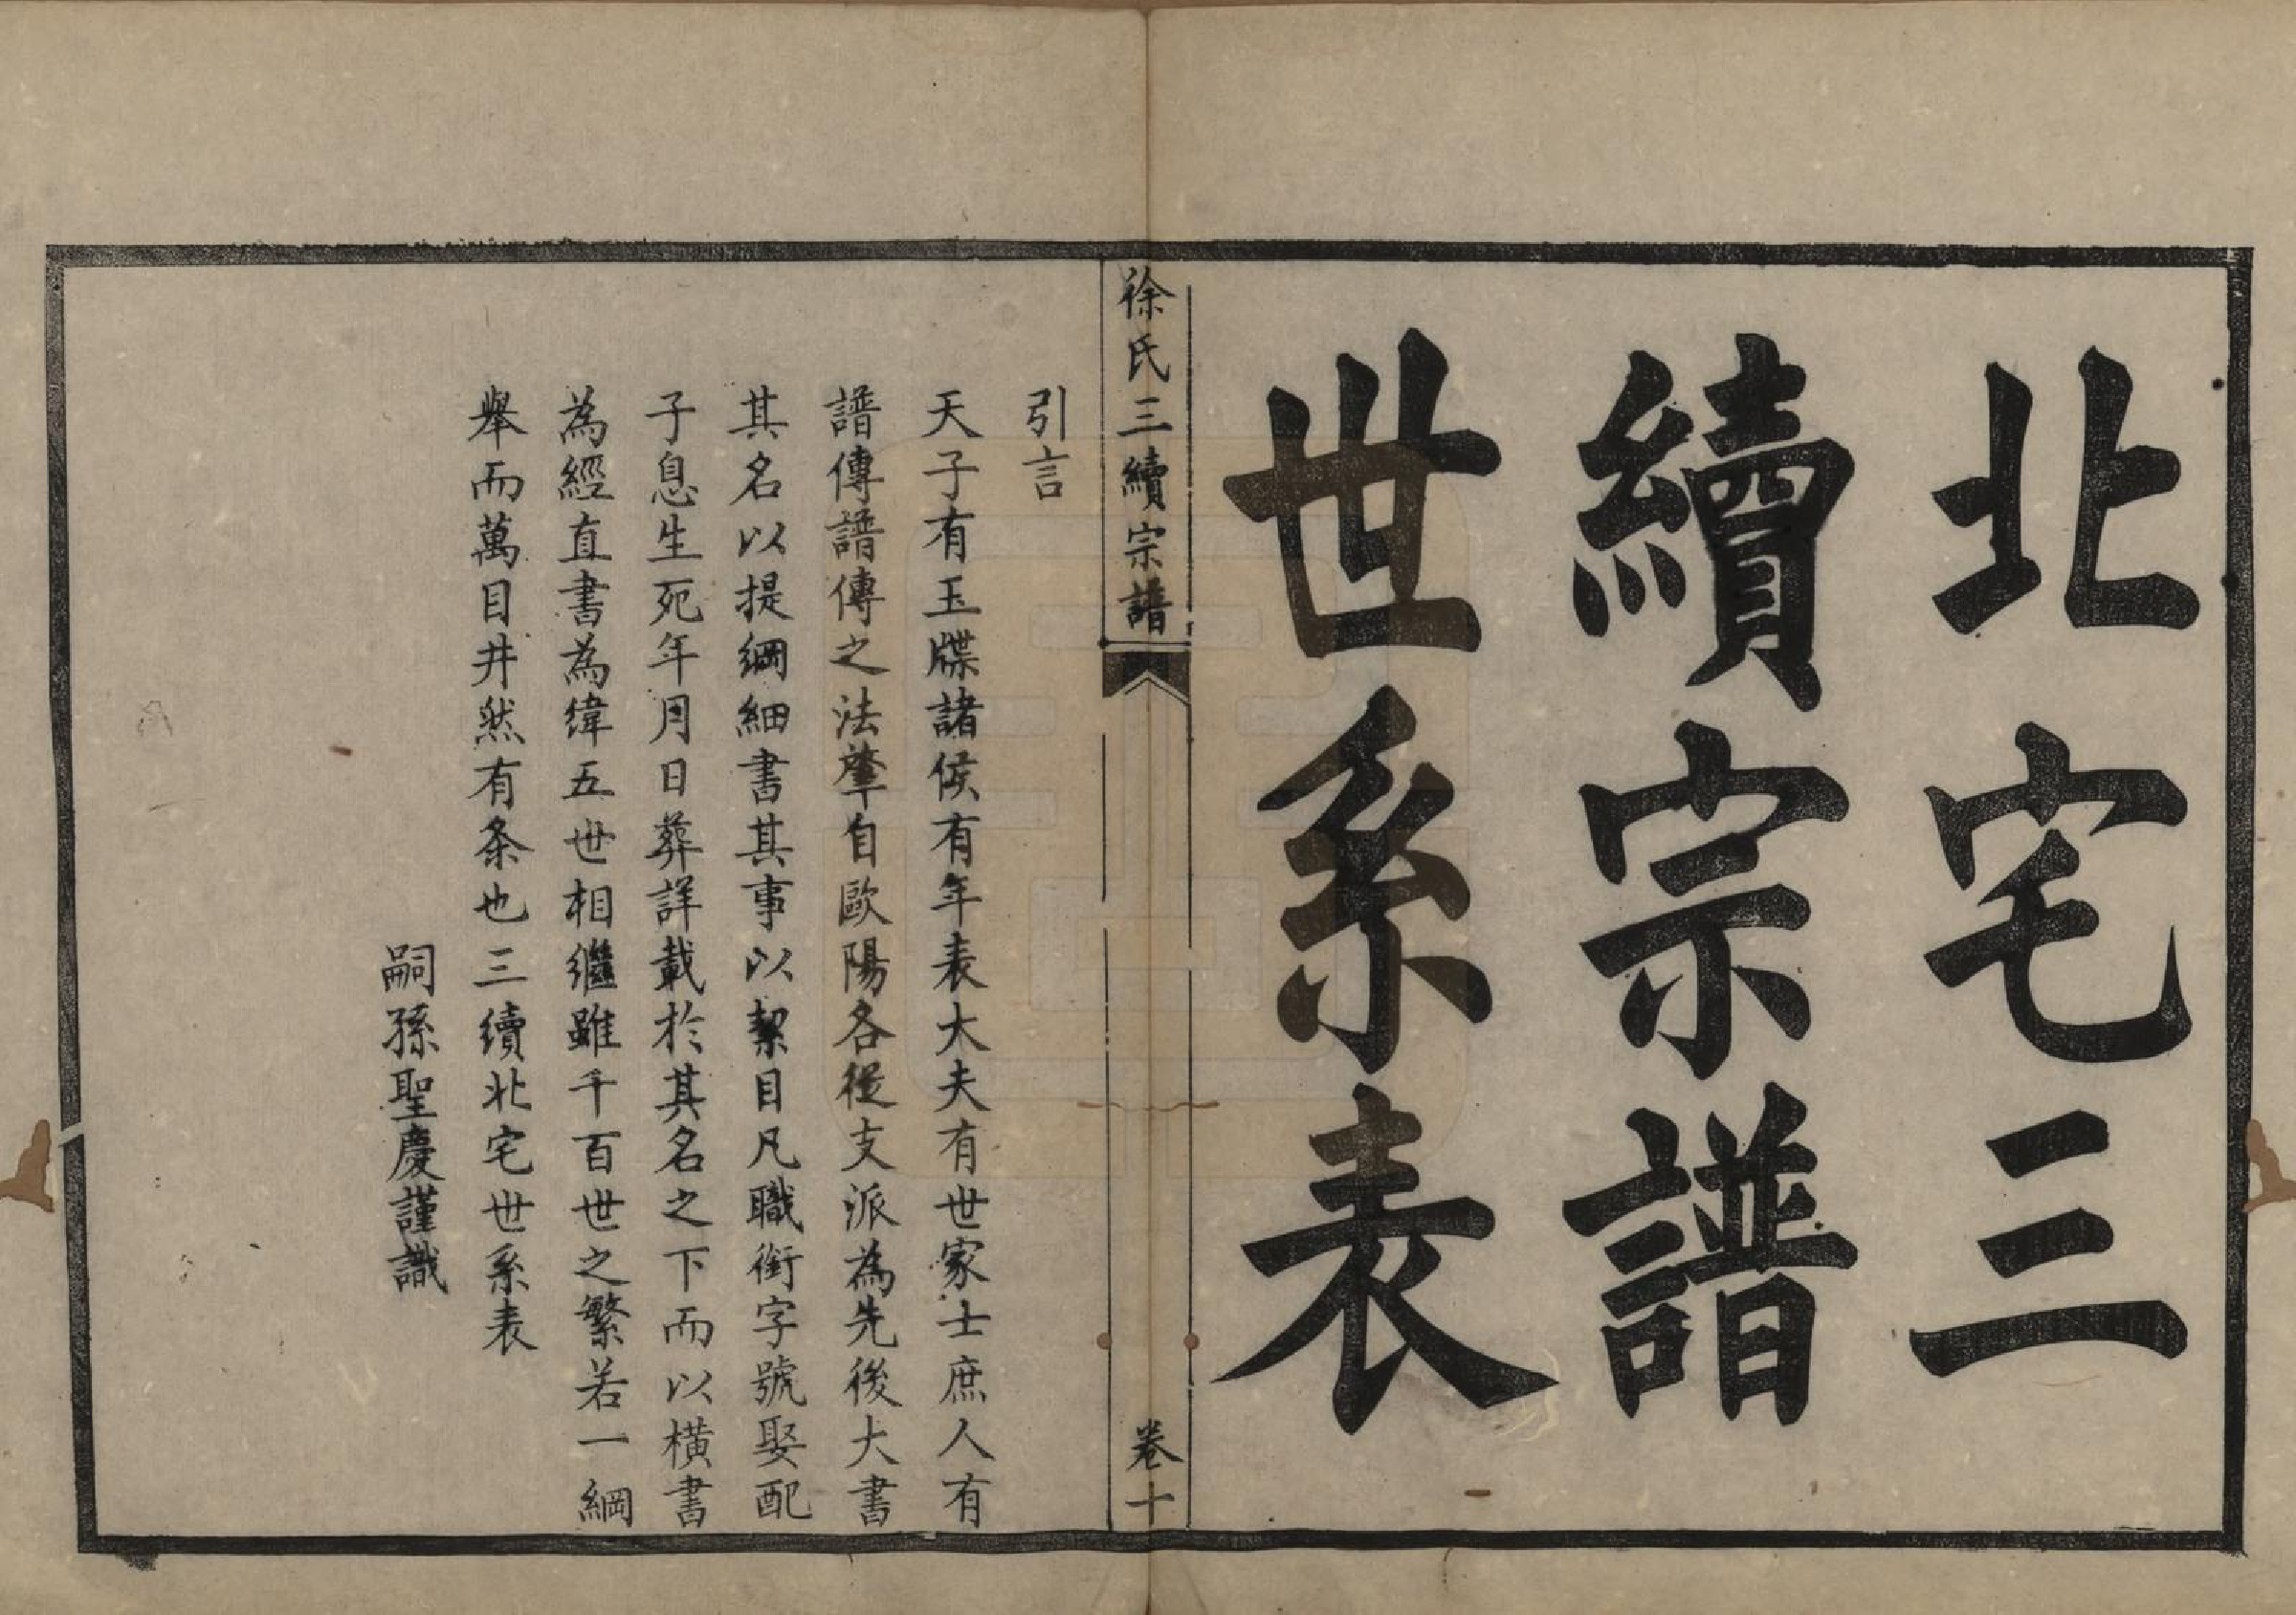 北宅三
續宗譜
世系表
徐氏三續宗譜
卷十
引言
天子有玉牒諸侯有年表大夫有世家士庶人有
譜傳譜傳之法肇自歐陽各從支派為先後大書
其名以提綱細書其事以絜目凡職銜字號娶配
子息生死年月日葬詳載於其名之下而以橫書
為經直書為緯五世相繼雖千百世之繁若一綱
舉而萬目井然有条也三續北宅世系表
嗣孫聖慶謹識